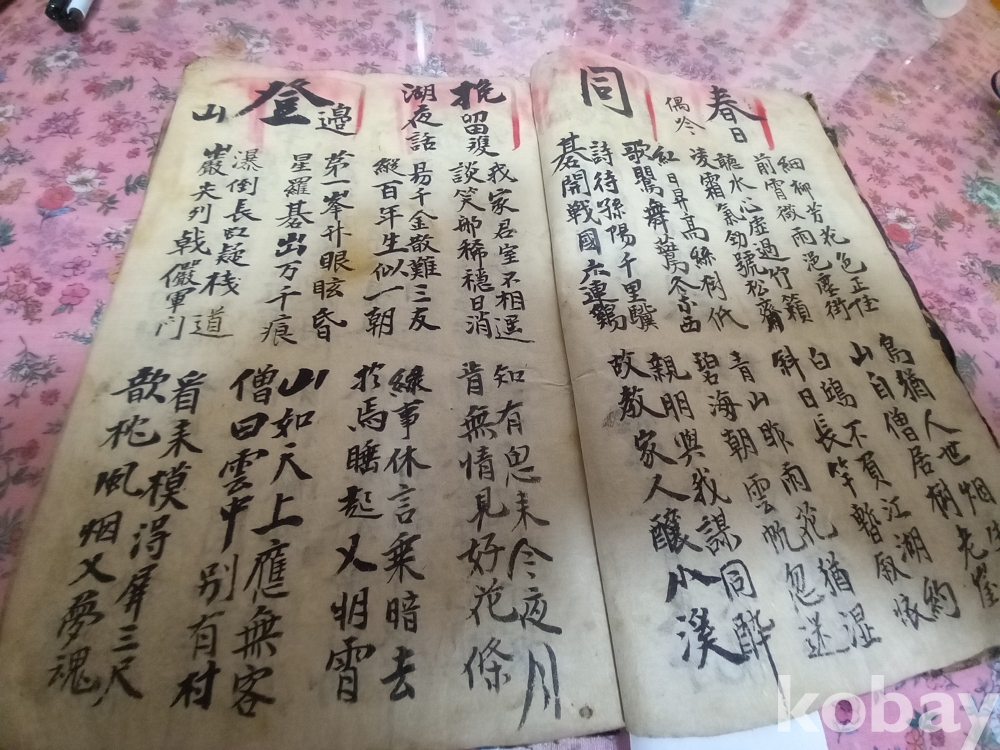 春日
偶吟
同
細柳芳花色正佳
前宵微雨浥塵街
聽水心虛過竹籟
凌霜氣勁號松齋
紅日昇高絲樹低
歌鶯舞各東西
詩待孫陽千里驥
碁開戰國六連鷄
鳥猶人世烟生
山自僧居樹老崖
白鴻不負江湖約
斜日長竿暫
青山昨雨花猶湿
碧海朝雲帆忽送
親朋與我謀同醉
故教家人釀小溪
挽留
湖夜話
邊
登
山
我家君室不相遥
談笑那稀穩日消
易千金散難三友
縱百年生似一朝
第一峯升眼眩昏
星羅碁出万千痕
瀑倒長虹疑棧道
巖夾列戟儼軍门
知有思来今夜月
肯無情見好花條
緣事休言乗暗去
於焉睡起又明宵
山如天上應無客
僧曰雲中別有村
看来模得屏三尺
欹枕風烟又夢魂
kobay